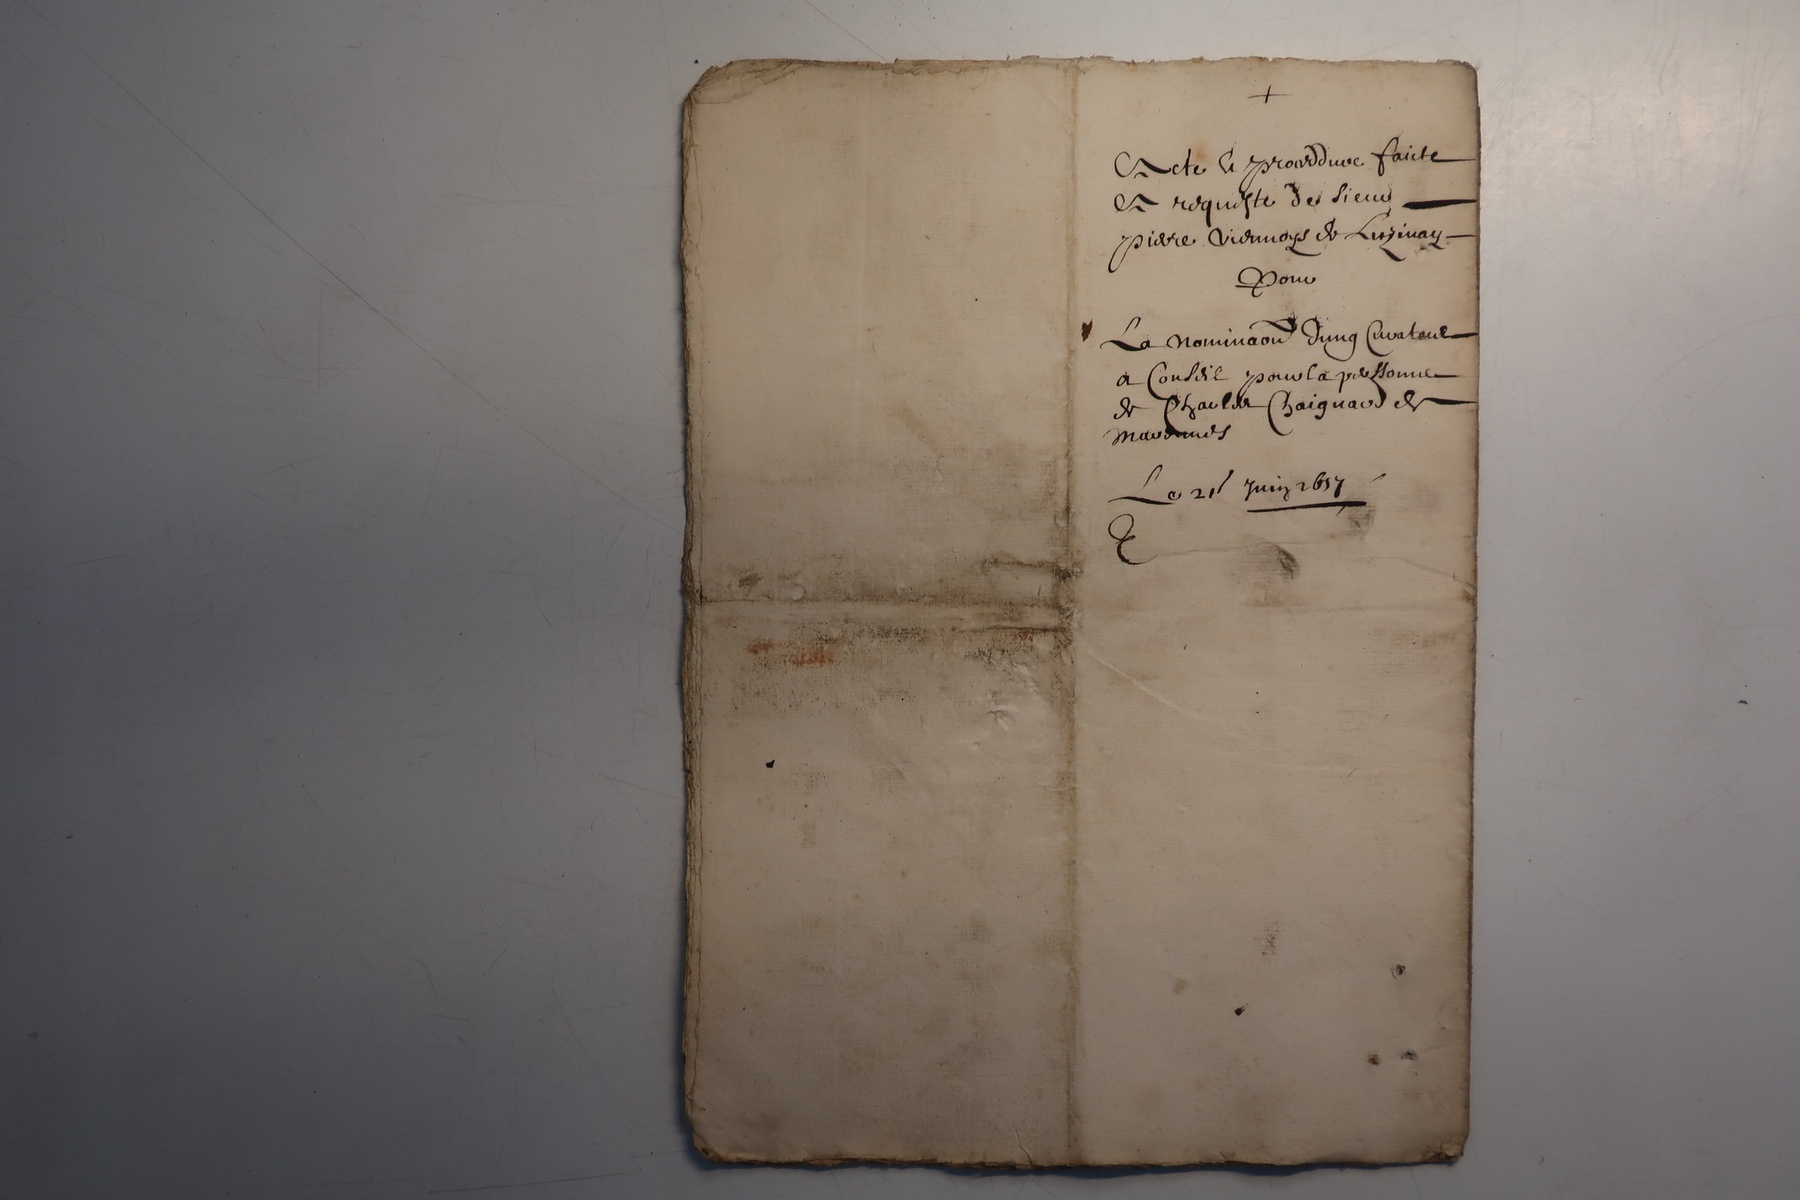 +
Acte de proceddure faicte
A requeste de sieur
pierre Viennoys de Luzinay
Pour
La nominaon dung Curateur
a Conseil pour la personne
de Charles Chaignard de
Le 21 Juin 1657